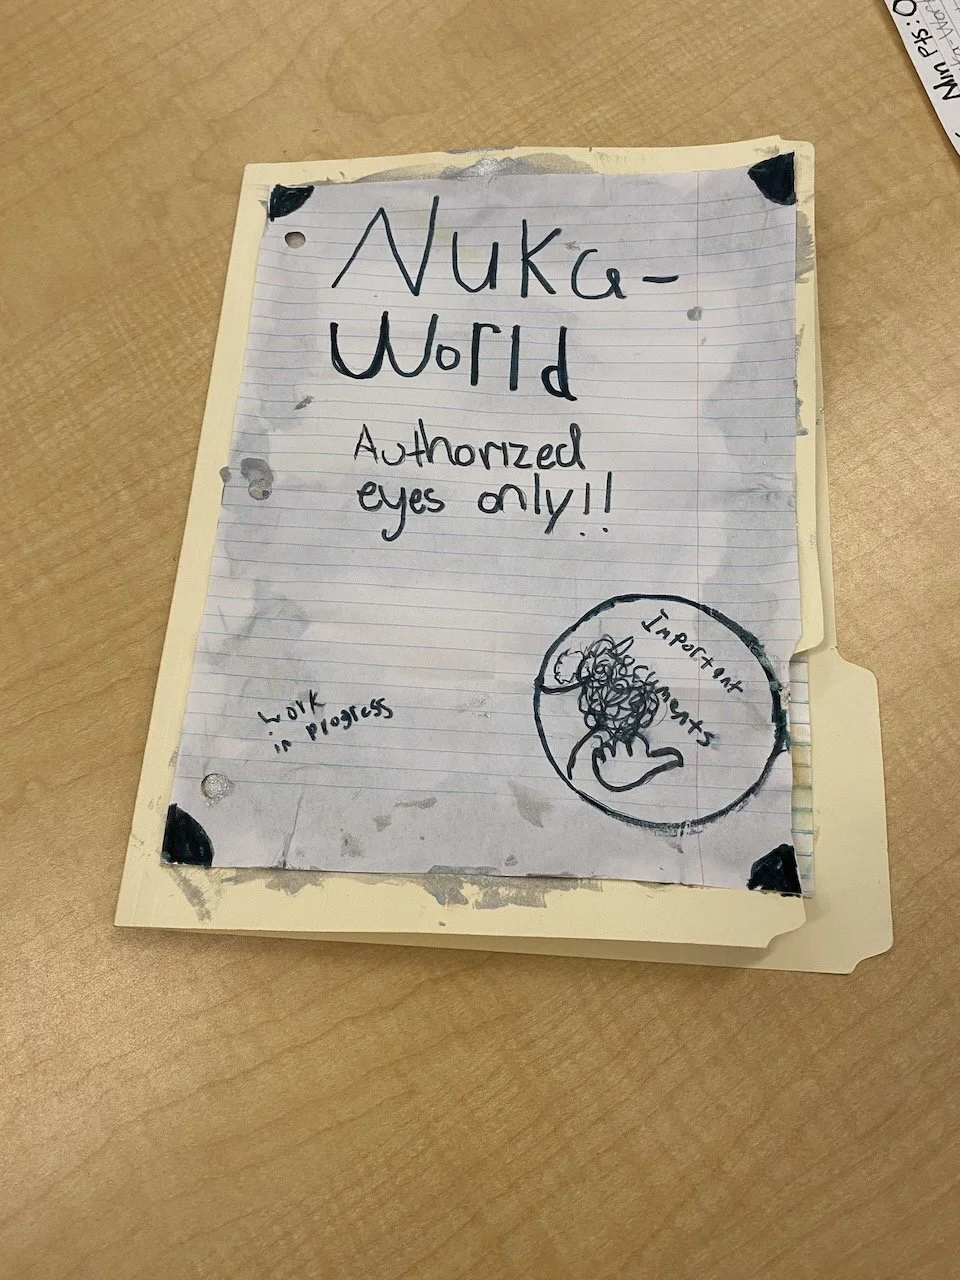 Nuka-
World
Authorized
eyes only!!
Important
work
in progress
Min Pts: 0